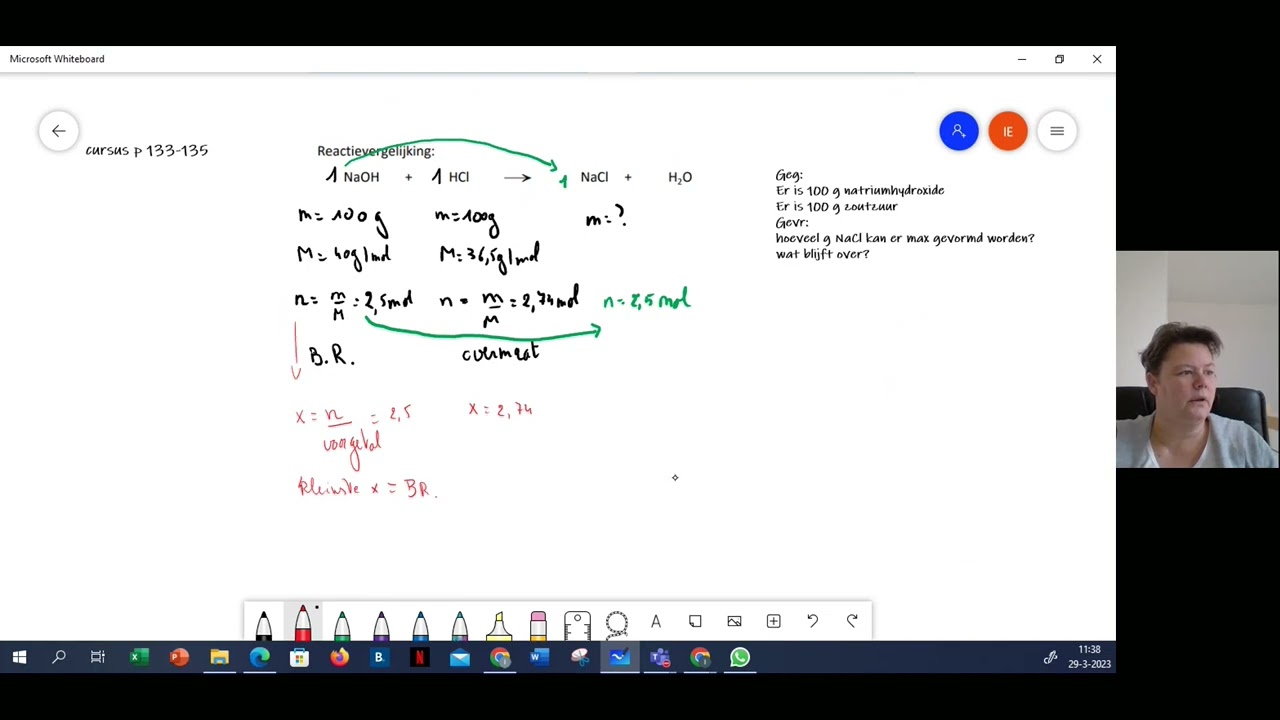 Microsoft Whiteboard
cursus p 133-135
IE
Reactievergelijking:
1 NaOH + 1 HCl → 1 NaCl + H₂O
m = 100g m = 100g m = ?
M = 40g/mol M = 36,5g/mol
n = m/M = 2,5mol n = m/M = 2,74mol n = 2,5mol
B.R. overmaat
x = n/voorgetal = 2,5 x = 2,74
kleinste x = BR.
Geg:
Er is 100 g natriumhydroxide
Er is 100 g zoutzuur
Gevr:
hoeveel g NaCl kan er max gevormd worden?
wat blijft over?
A
11:38
29-3-2023